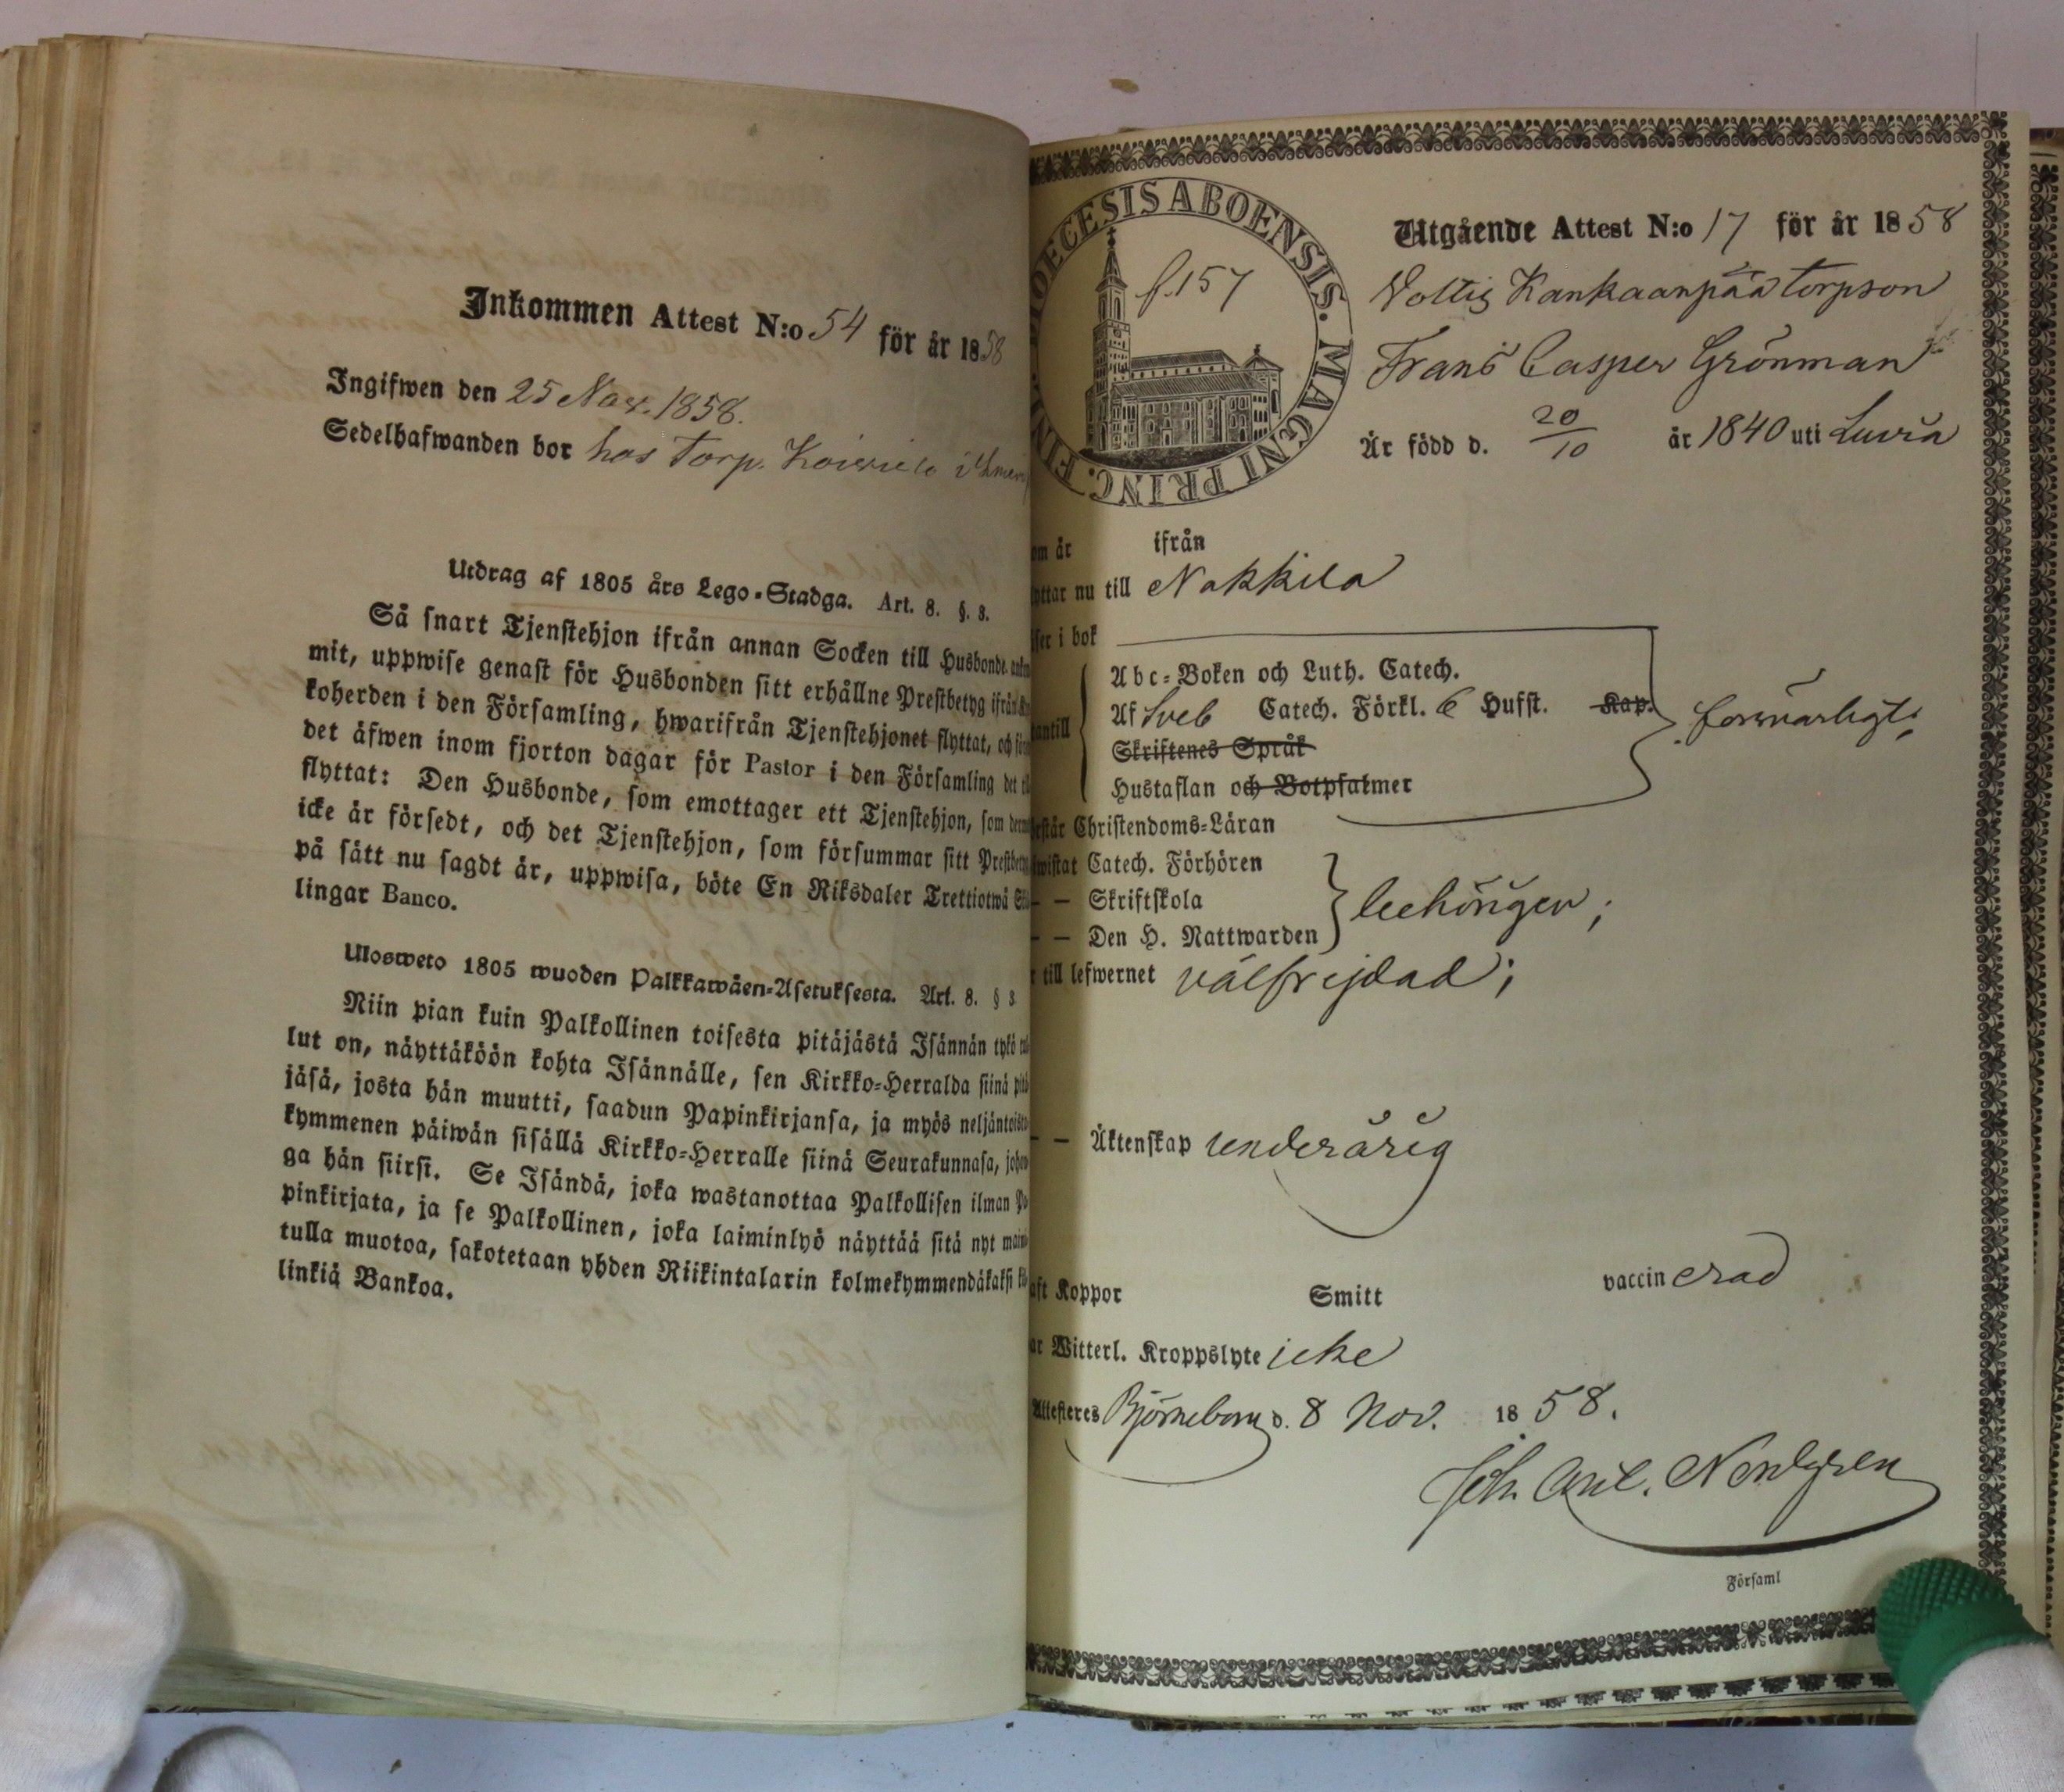 Inkommen Attest N:o 54 för år 1858
Ingifwen den 25 Nov. 1858.
Sedelhafwanden bor hos Torp.
Utdrag af 1805 års Lego-Stadga. Art. 8. §. 3.
Så snart Tjenstehjon ifrån annan Socken till Husbonde
mit, uppwise genast för Husbonden sitt erhållne Prestbetyg ifrån
koherden i den Församling, hwarifrån Tjenstehjonet flyttat, och
det äfwen inom fjorton dagar för Pastor i den Församling det
flyttat: Den Husbonde, som emottager ett Tjenstehjon, som
icke är försedt, och det Tjenstehjon, som försummar sitt
på sätt nu sagdt är, uppwisa, böte En Riksdaler Trettiotwå
lingar Banco.
Ulosweto 1805 wuoden Palkkawäen-Asetuksesta. Art. 8. § 3
Niin pian kuin Palkollinen toisesta pitäjästä Isännän tykö
lut on, näyttäköön kohta Isännälle, sen Kirkko-Herralda siinä
jäsä, josta hän muutti, saadun Papinkirjansa, ja myös neljäntoista
kymmenen päiwän sisällä Kirkko-Herralle siinä Seurakunnasa,
ga hän siirsi. Se Isändä, joka wastanottaa Palkollisen ilman
pinkirjata, ja se Palkollinen, joka laiminlyö näyttää sitä nyt
tulla muotoa, sakotetaan yhden Riikintalarin kolmekymmendäkaksi
linkiä Bankoa.
DIOECESIS ABOENSIS. MAGNI PRINC. FINL.
f. 157
Utgående Attest N:o 17 för år 1858
Kankaanpää torpson
Frans Casper Grönman
Är född d. 20/10 år 1840 uti Luvia
om år ifrån
yttar nu till Nakkila
ser i bok
Abc-Boken och Luth. Catech.
Af Sveb Catech. Förkl. 6 Hufst. Kap.
antill
försvarligt;
Skriftenes Språk
Hustaflan och Botpsalmer
rstår Christendoms-Läran
wistat Catech. Förhören
– – Skriftskola
behörigen;
– – Den H. Nattwarden
r till lefwernet välfrejdad;
– – Äktenskap underårig
aft Koppor Smitt vaccinerad
ar Witterl. Kroppslyte icke
Attesteres Björneborg d. 8 Nov. 1858.
Joh. Axel. Nordgren
Församl